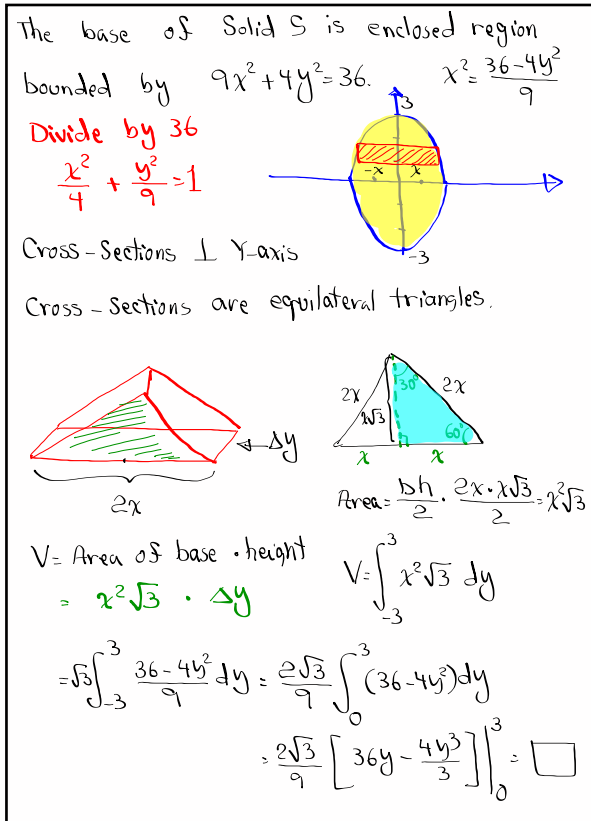 The base of Solid S is enclosed region
bounded by 9x²+4y²=36. x²=\frac{36-4y²}{9}
Divide by 36
\frac{x²}{4} + \frac{y²}{9} =1
3
-x x
-3
Cross-Sections ⊥ Y-axis
Cross-Sections are equilateral triangles.
2x 30° 2x
x√3
60°
Δy
x x
2x
Area= \frac{bh}{2} · \frac{2x·x√3}{2} = x²√3
V= Area of base · height
= x²√3 · Δy
V=∫_{-3}^{3} x²√3 dy
=√3∫_{-3}^{3} \frac{36-4y²}{9} dy = \frac{2√3}{9} ∫_{0}^{3} (36-4y²)dy
= \frac{2√3}{9} [36y - \frac{4y³}{3}]|_{0}^{3} = □